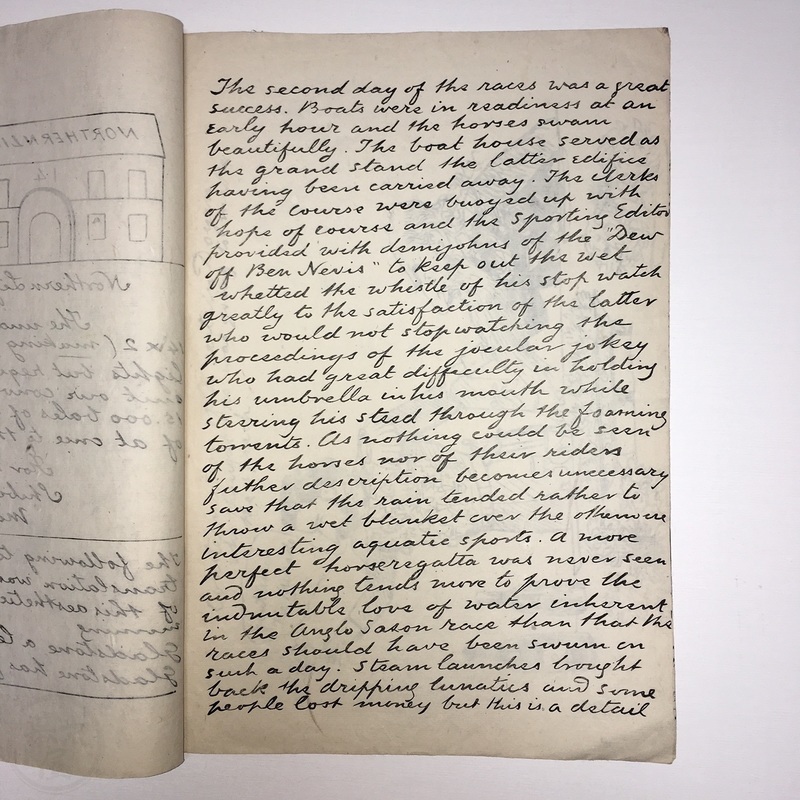 The second day of the races was a great
success. Boats were in readiness at an
early hour and the horses swam
beautifully. The boat house served as
the grand stand the latter edifice
having been carried away. The clerks
of the course were buoyed up with
hope of course and the Sporting Editor
provided with demijohns of the "Dew
off Ben Nevis" to keep out the wet
whetted the whistle of his stop watch
greatly to the satisfaction of the latter
who would not stop watching the
proceedings of the jocular jokey
who had great difficulty in holding
his umbrella in his mouth while
steering his steed through the foaming
torrents. As nothing could be seen
of the horses nor of their riders
futher description becomes unnecessary
save that the rain tended rather to
throw a wet blanket over the otherwise
interesting aquatic sports. A more
perfect horseregatta was never seen
and nothing tends more to prove the
indmitable love of water inherent
in the Anglo Saxon race than that the
races should have been swum on
such a day. Steam launches brought
back the dripping lunatics and some
people lost money but this is a detail